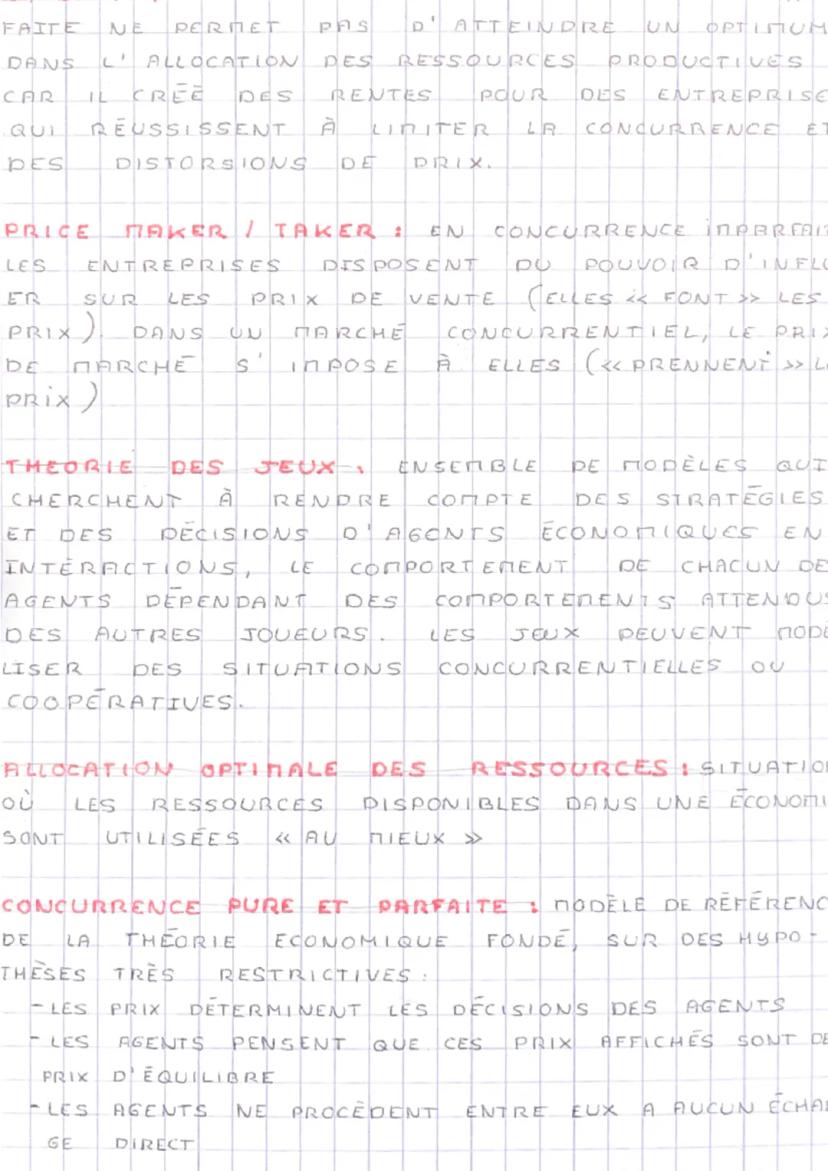 FAITE NE PERMET PAS D'ATTEINDRE UN OPTIMUM
DANS L'ALLOCATION DES RESSOURCES PRODUCTIVES
CAR IL CRÉÉ DES RENTES POUR DES ENTREPRISE
QUI RÉUSSISSENT À LIMITER LA CONCURRENCE ET
DES DISTORSIONS DE PRIX.
PRICE MAKER / TAKER : EN CONCURRENCE IMPARFAIT
LES ENTREPRISES DISPOSENT DU POUVOIR D'INFLU
ER SUR LES PRIX DE VENTE (ELLES « FONT » LES
PRIX). DANS UN MARCHÉ CONCURRENTIEL, LE PRIX
DE MARCHÉ S'IMPOSE À ELLES (« PRENNENT » LE
PRIX)
THEORIE DES JEUX : ENSEMBLE DE MODÈLES QUI
CHERCHENT À RENDRE COMPTE DES STRATÉGIES
ET DES DÉCISIONS D'AGENTS ÉCONOMIQUES EN
INTÉRACTIONS, LE COMPORTEMENT DE CHACUN DE
AGENTS DÉPENDANT DES COMPORTEMENTS ATTENDUS
DES AUTRES JOUEURS. LES JEUX PEUVENT MODÉ
LISER DES SITUATIONS CONCURRENTIELLES OU
COOPÉRATIVES.
ALLOCATION OPTIMALE DES RESSOURCES : SITUATION
OÙ LES RESSOURCES DISPONIBLES DANS UNE ÉCONOMI
SONT UTILISÉES « AU MIEUX »
CONCURRENCE PURE ET PARFAITE : MODÈLE DE RÉFÉRENC
DE LA THÉORIE ECONOMIQUE FONDÉ, SUR DES HYPO-
THÈSES TRÈS RESTRICTIVES :
- LES PRIX DÉTERMINENT LES DÉCISIONS DES AGENTS
- LES AGENTS PENSENT QUE CES PRIX AFFICHÉS SONT DE
PRIX D'ÉQUILIBRE
- LES AGENTS NE PROCÈDENT ENTRE EUX A AUCUN ÉCHAN
GE DIRECT